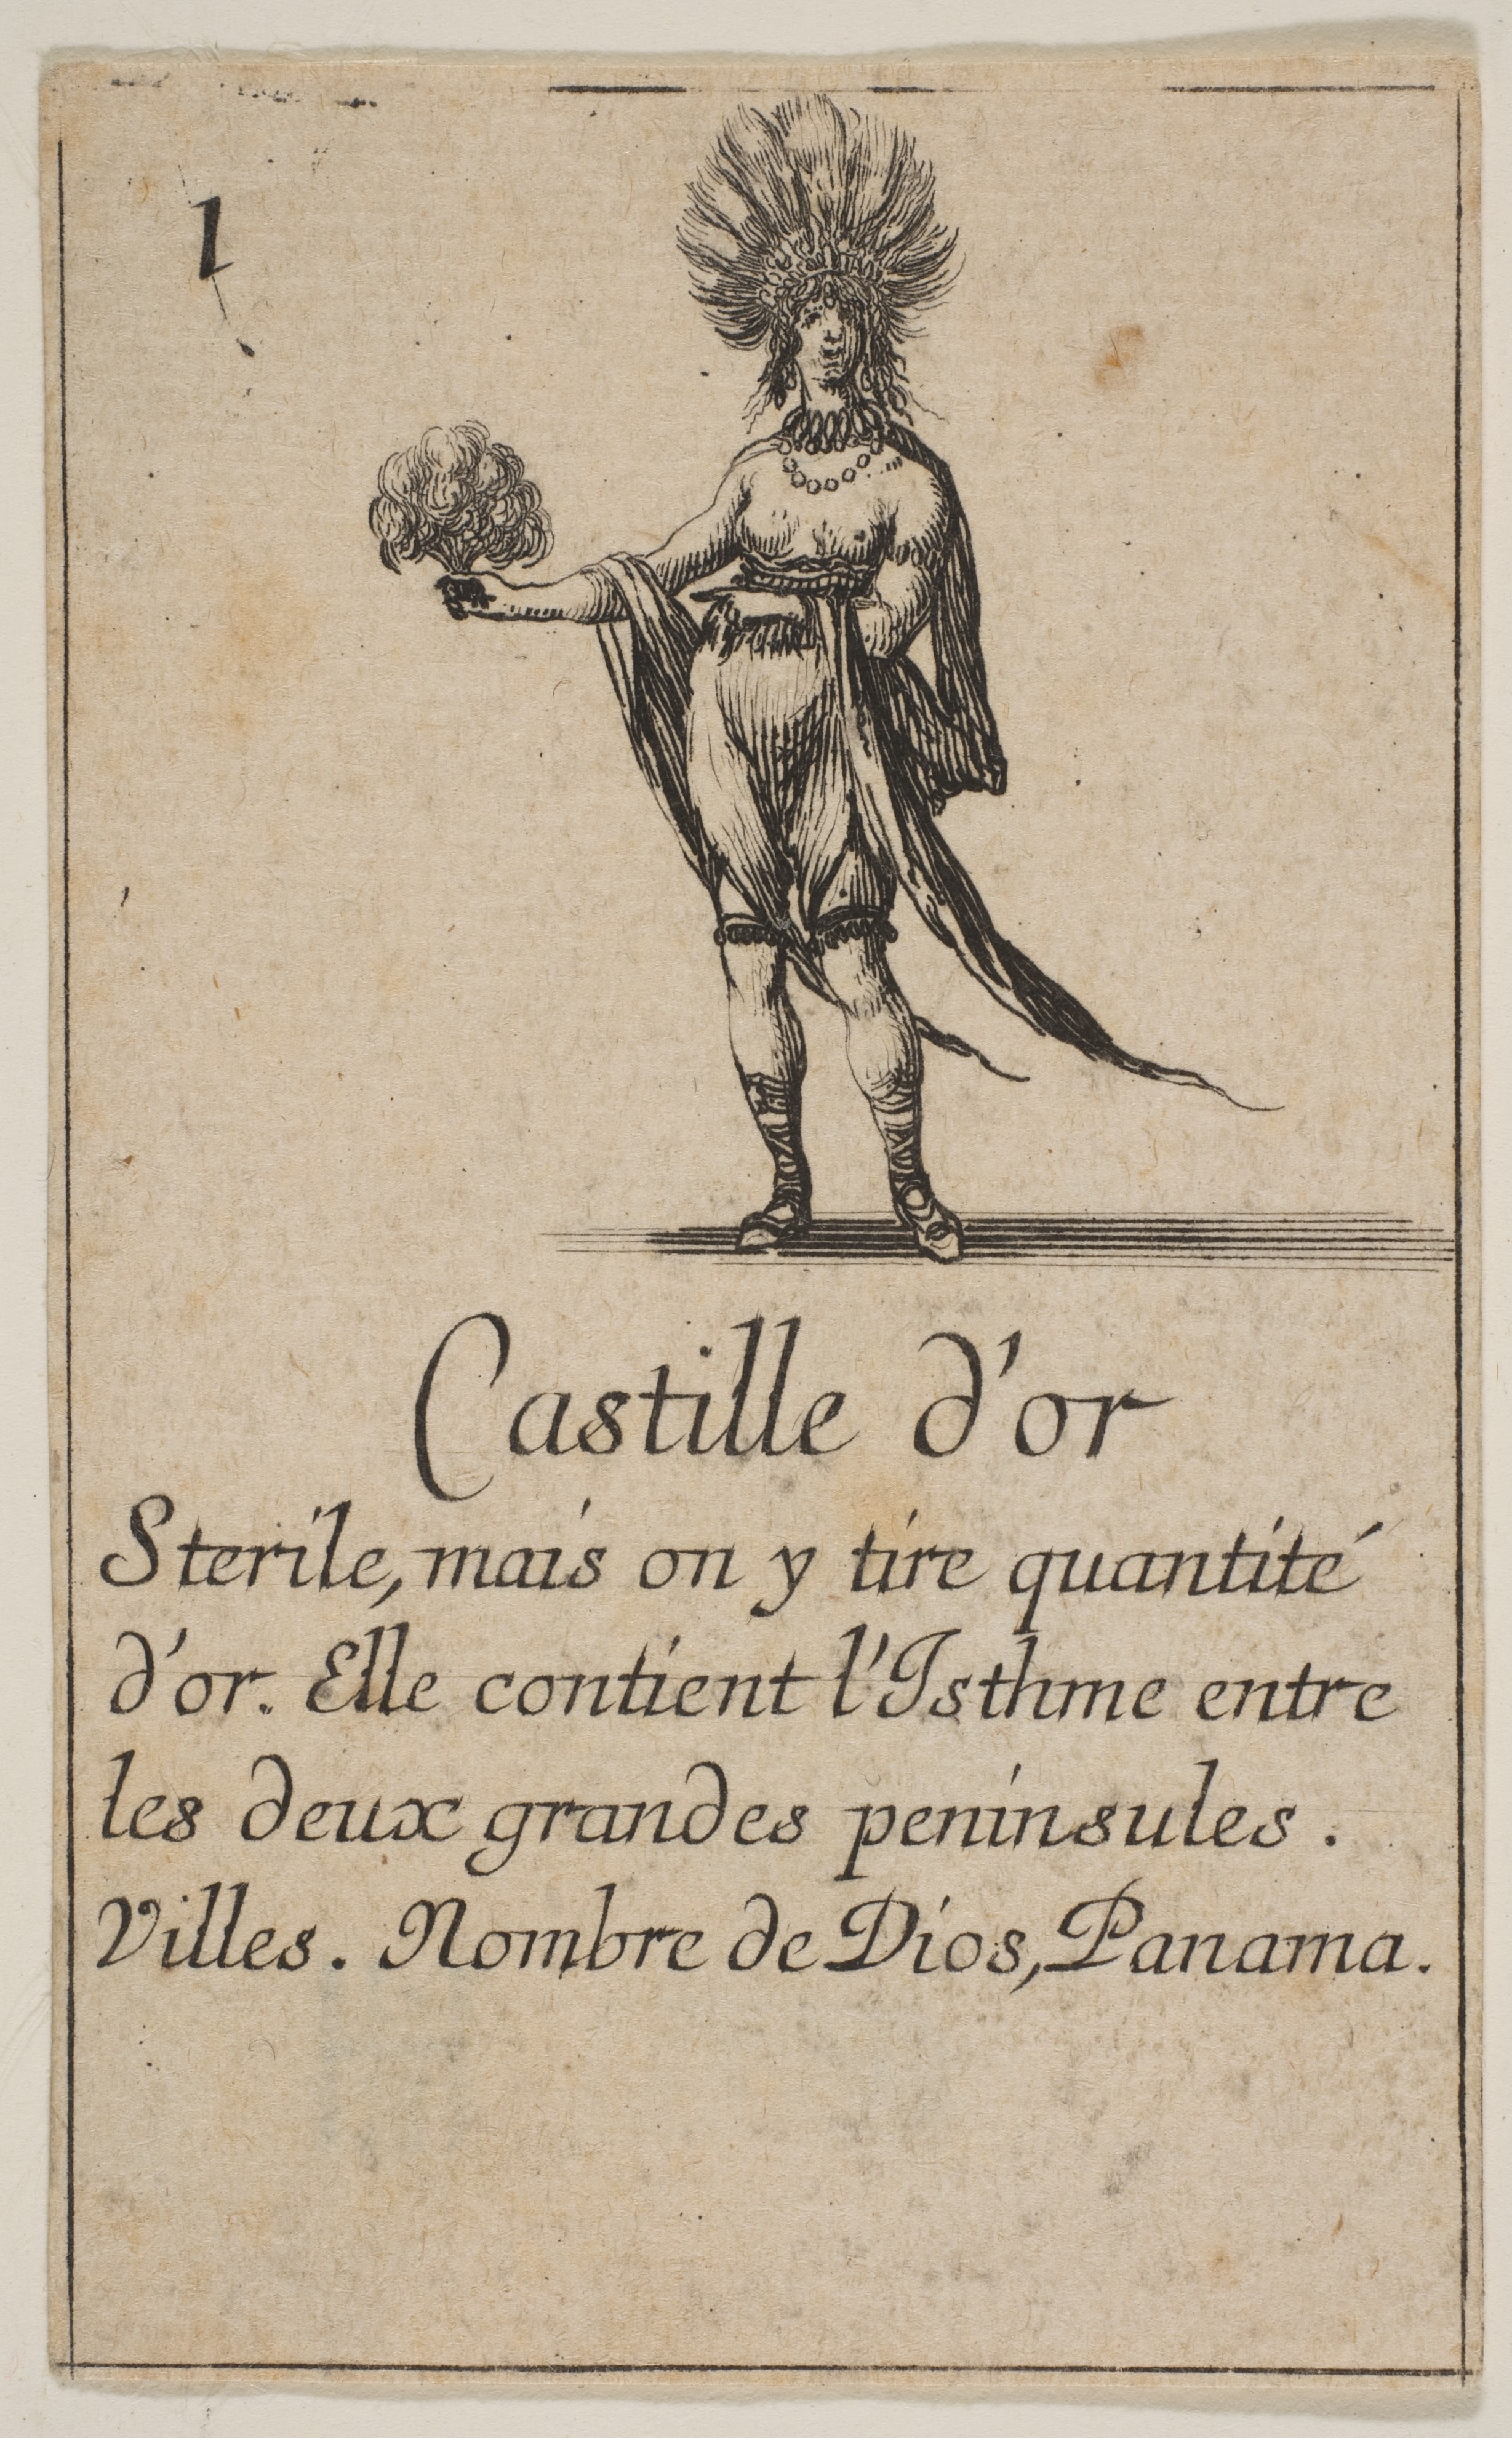 1
Castille d'or
Sterile, mais on y tire quantité
d'or. Elle contient l'Isthme entre
les deux grandes peninsules.
Villes. Nombre de Dios, Panama.